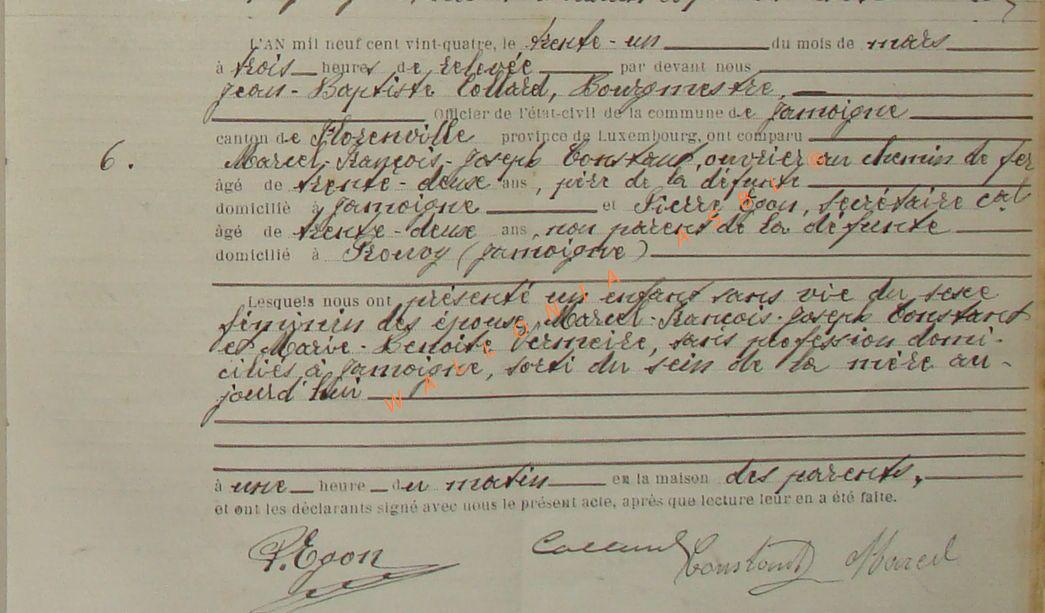 L'AN mil neuf cent vint-quatre, le trente-un du mois de mars
à trois heures de relevée par devant nous
Jean-Baptiste Collard, Bourgmestre,
Officier de l'état-civil de la commune de Jamoigne
canton de Florenville province de Luxembourg, ont comparu
6. Marcel-François-Joseph Constant, ouvrier au chemin de fer
âgé de trente-deux ans, père de la défunte
domicilié à Jamoigne et Pierre Egon, secrétaire cal
âgé de trente-deux ans, non parent de la défunte
domicilié à Prouvy (Jamoigne)
Lesquels nous ont présenté un enfant sans vie du sexe
féminin des époux Marcel-François-Joseph Constant
et Marie-Benoite Vermeire, sans profession domi-
ciliés à Jamoigne, sorti du sein de la mère au-
jourd'hui
à une heure du matin en la maison des parents,
et ont les déclarants signé avec nous le présent acte, après que lecture leur en a été faite.
P. Egon Collard Constant Marcel
WALLONIA ASBL ©